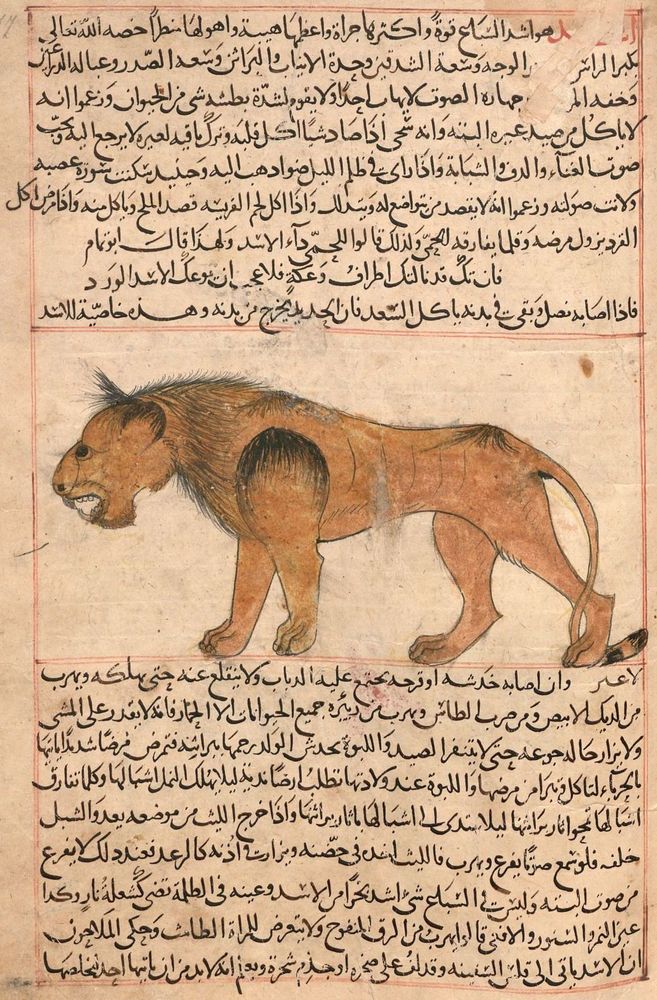 هو اشد السباع قوة واكثرها جراة واعظمها هيبة واهولها منظرا خصه الله تعالى
بكبر الراس الوجه وسعة الشدقين وحدة الانياب والبراثن وسعة الصدر وعبالة الذراعين
وخفة جهارة الصوت لا يهاب احدا ولا يقوم لشدة بطشه شى من الحيوان وزعموا انه
لا ياكل من صيد غيره البتة وانه سخى اذا صاد شيا اكل قلبه وترك باقيه لغيره لا يرجع اليه ويحب
صوت الغناء والدف والشبابة واذا راى فى ظلم الليل ضوا ذهب اليه وحينيذ سكنت سورة غضبه
ولانت صولته وزعموا انه لا يقصد من يتواضع له واذا اكل لحم الفريسة قصد الملح وياكل منه واذا مرض اكل
القرد يزول مرضه وقلما يفارقه الحمى ولذلك قالوا للحمى داء الاسد ولهذا قال ابو تمام
فان تك قد نالتك اطراف وعكة فلا عجب ان يوعك الاسد الورد
فاذا اصابه نصل وبقى فى بدنه ياكل السعد فان الحديد يخرج من بدنه وهذه خاصية للاسد
لا غير وان اصابه خدشه او قرحه يجتمع عليه الذباب ولا ينقلع عنه حتى يهلكه ويهرب
من الديك الابيض ومن ضرب الطاس ويهرب من زئيره جميع الحيوانات الا الحمار فانه لا يقدر على المشى
ولا يزار حالة جوعه حتى لا يتنفر الصيد واللبوة يخدش الولد رحمها ببراثنه فتمرض مرضا شديدا
لتاكل وتبرا من مرضها واللبوة عند ولادتها تطلب ارضا ندية ليلا يهلك النمل اشبالها وكلما تفارق
اشبالها تمحو اثار براثنها ليلا يهتدى الى اشبالها باثار براثنها واذا خرج الليث من موضعه يعدو والشبل
خلفه فلو سمع صوتا يفزع ويهرب فالليث اخذه فى حضنه ويزار فى اذنه كالرعد فبعد ذلك لا يفزع
من صوت البتة وليس فى السباع شى اشد بخرا من الاسد وعينه فى الظلمة تضى كشعلة نار وكذا
عين النمر والسنور والافعى قالوا يهرب من الزق المنفوخ ولا يتعرض للمراة الطامث وحكى الملاحون
ان الاسد ياتى الى قلس السفينة وقد لف على صخرة او جذم شجرة ويعلم انه لا بد من ان ياتيها احد ليخلصها